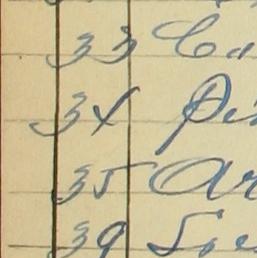 33 Ca
34 Pe
35 Ar
39 Soe